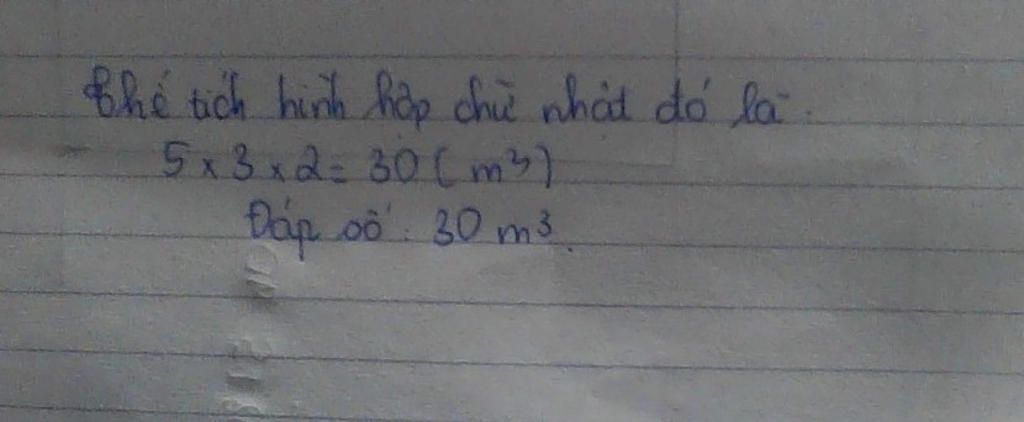 Thể tích hình hộp chữ nhật đó là:
5 x 3 x 2 = 30 ( m3 )
Đáp số : 30 m3.